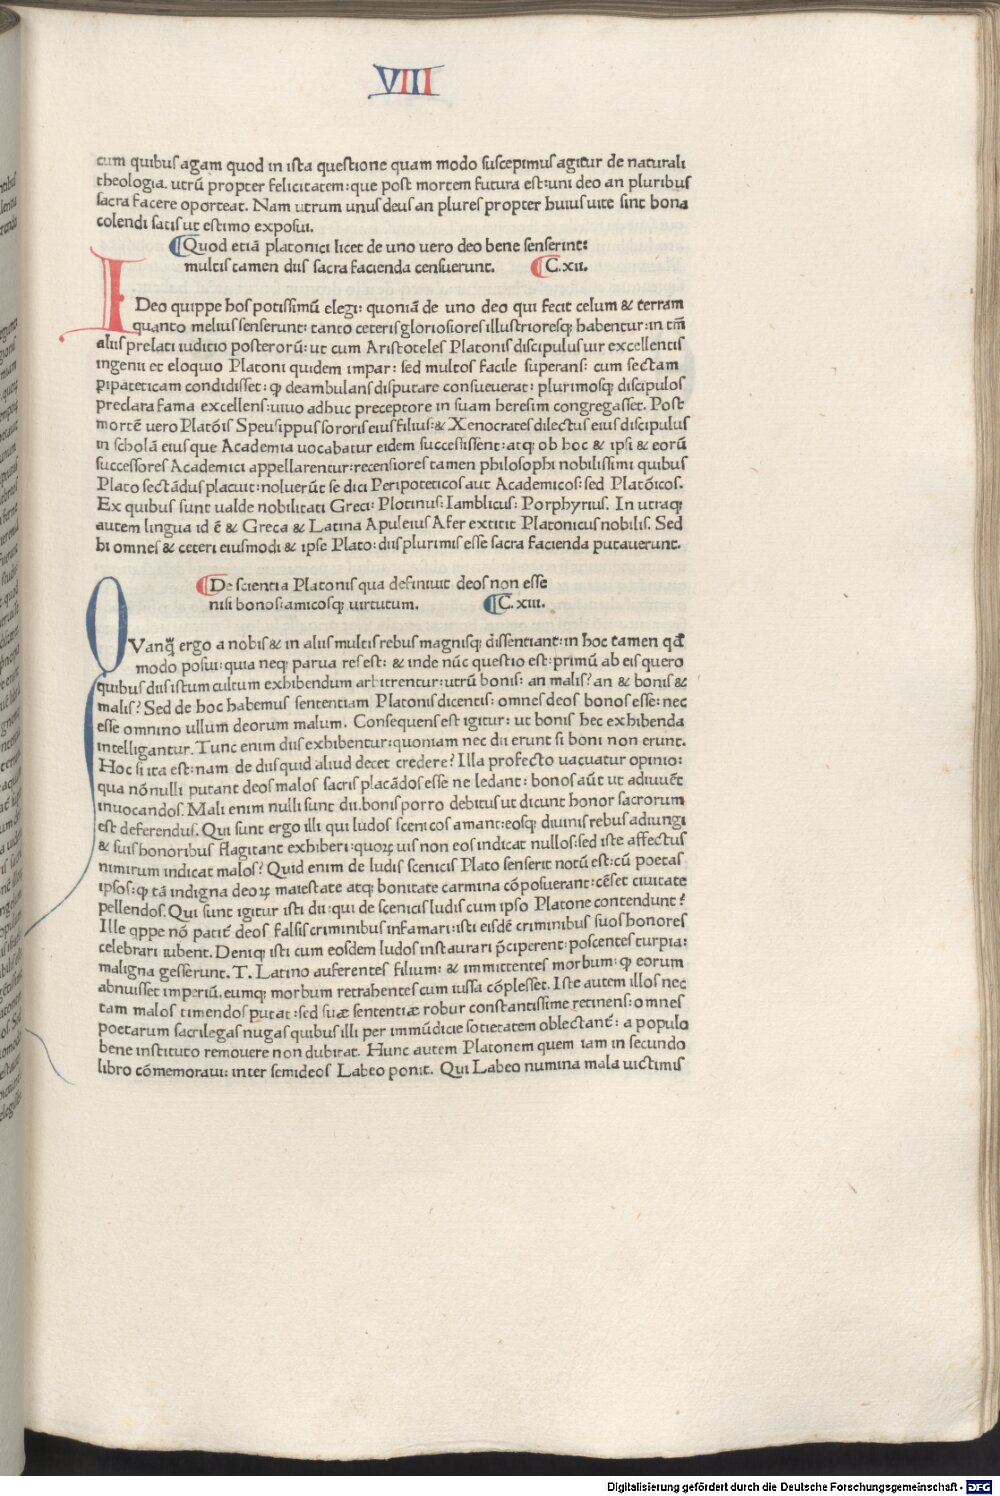 VIII
cum quibus agam quod in ista questione quam modo suscepimus agitur de naturali
theologia. utrū propter felicitatem: que post mortem futura est: uni deo an pluribus
sacra facere oporteat. Nam utrum unus deus an plures propter huius uite sint bona
colendi satis ut estimo exposui.
¶Quod etiā platonici licet de uno uero deo bene senserint:
multis tamen diis sacra facienda censuerunt. ¶C.xii.
IDeo quippe hos potissimū elegi: quoniā de uno deo qui fecit celum & terram
quanto melius senserunt: tanto ceteris gloriosiores illustrioresq; habentur: in tm̄
aliis prelati iuditio posterorū: ut cum Aristoteles Platonis discipulus uir excellentis
ingenii et eloquio Platoni quidem impar: sed multos facile superans: cum sectam
p̱ipateticam condidisset: ꝙ deambulans disputare consueuerat: plurimosq; discipulos
preclara fama excellens: uiuo adhuc preceptore in suam heresim congregasset. Post
mortē uero Platōis Speusippus sororis eius filius: & Xenocrates dilectus eius discipulus
in scholā eius que Academia uocabatur eidem successissent: atq; ob hoc & ipsi & eorū
successores Academici appellarentur: recensiores tamen philosophi nobilissimi quibus
Plato sectādus placuit: noluerūt se dici Peripoteticos aut Academicos: sed Platōicos.
Ex quibus sunt ualde nobilitati Greci: Plotinus: Iamblicus: Porphyrius. In utraq;
autem lingua id ē & Greca & Latina Apuleius Afer extitit Platonicus nobilis. Sed
hi omnes & ceteri eiusmodi & ipse Plato: diis plurimis esse sacra facienda putauerunt.
¶De scientia Platonis qua definiuit deos non esse
nisi bonos: amicosq; uirtutum. ¶C.xiii.
QVanq̄ ergo a nobis & in aliis multis rebus magnisq; dissentiant: in hoc tamen qđ
modo posui: quia neq; parua res est: & inde nūc questio est: primū ab eis quero
quibus diis istum cultum exhibendum arbitrentur: utrū bonis: an malis? an & bonis &
malis? Sed de hoc habemus sententiam Platonis dicentis: omnes deos bonos esse: nec
esse omnino ullum deorum malum. Consequens est igitur: ut bonis hec exhibenda
intelligantur. Tunc enim diis exhibentur: quoniam nec dii erunt si boni non erunt.
Hoc si ita est: nam de diis quid aliud decet credere? Illa profecto uacuatur opinio:
qua nōnulli putant deos malos sacris placādos esse ne ledant: bonos aūt ut adiuuēt
inuocandos. Mali enim nulli sunt dii. bonis porro debitus ut dicunt honor sacrorum
est deferendus. Qui sunt ergo illi qui ludos scenicos amant: eosq; diuinis rebus adiungi
& suis honoribus flagitant exhiberi: quoꝝ uis non eos indicat nullos: sed iste affectus
nimirum indicat malos? Quid enim de ludis scenicis Plato senserit notū est: cū poetas
ipsos: ꝙ tā indigna deoꝝ maiestate atq; bonitate carmina cōposuerant: cēset ciuitate
pellendos. Qui sunt igitur isti dii: qui de scenicis ludis cum ipso Platone contendunt?
Ille qppe nō patit̄ deos falsis criminibus infamari: isti eisdē criminibus suos honores
celebrari iubent. Deniq; isti cum eosdem ludos instaurari p̄ciperent: poscentes turpia:
maligna gesserunt. T. Latino auferentes filium: & immittentes morbum: ꝙ eorum
abnuisset imperiū. eumq; morbum retrahentes cum iussa cōplesset. Iste autem illos nec
tam malos timendos putat: sed suæ sententiæ robur constantissime retinens: omnes
poetarum sacrilegas nugas quibus illi per immūdicie societatem oblectant̄: a populo
bene instituto remouere non dubitat. Hunc autem Platonem quem iam in secundo
libro cōmemoraui: inter semideos Labeo ponit. Qui Labeo numina mala uictimis
Digitalisierung gefördert durch die Deutsche Forschungsgemeinschaft - DFG